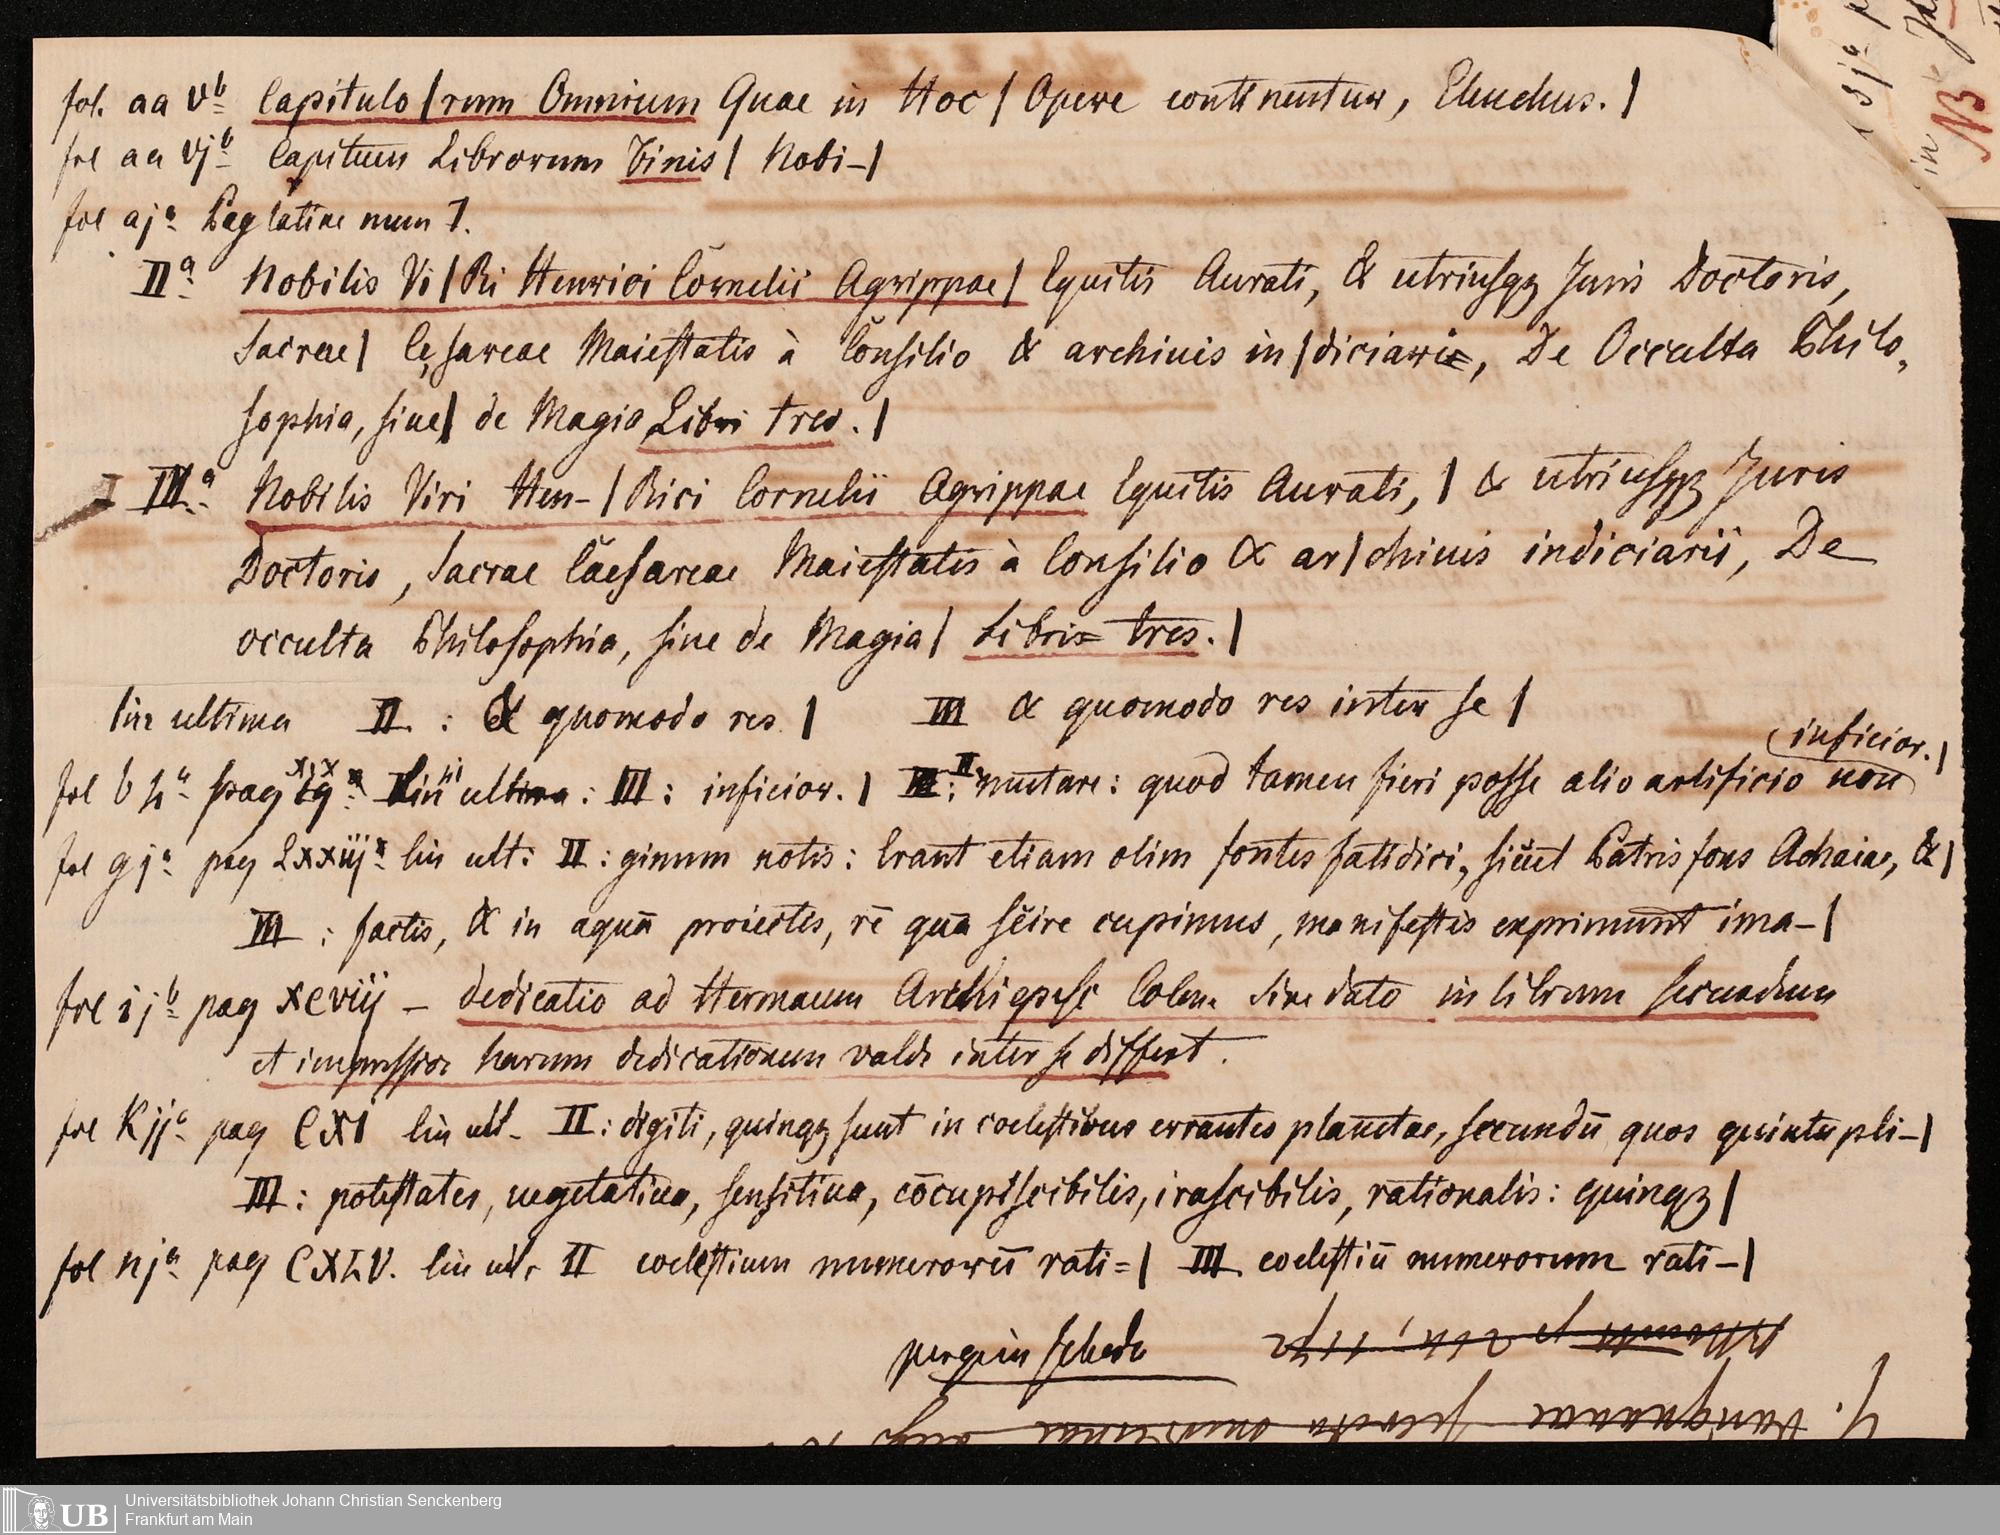 fol. aa vb Capitulo|rum Omnium Quae in Hoc | Opere continentur, Elenchus. |
fol aa vjb Capitum Librorum Finis | Nobi-|
fol aja Pag latine num 1.
IIa Nobilis Vi|Ri Henrici Cornelii Agrippae | Equitis Aurati, & utriusqz Juris Doctoris,
Sacrae | Cęsareae Maiestatis à Consilio & archiuis in|diciarii, De Occulta Philo-
sophia, siue | de Magia Libri tres. |
IIIa Nobilis Viri Hen-|Rici Cornelii Agrippae Equitis Aurati, | & utriusqz Juris
Doctoris, Sacrae Caesareae Maiestatis à Consilio & ar|chiuis indiciarii, De
occulta Philosophia, siue de Magia | Libri tres. |
lin ultima II : & quomodo res | III & quomodo res inter se |
inficior. |
fol b ha pag xix lin ultima : III : inficior. | II : mutare : quod tamen fieri posse alio artificio non
fol gja pag Lxxiij lin ult : II : ginum notis : Erant etiam olim fontes fatidici, sicut Patris fons Achaiae, & |
III : factis, & in aquā proiectis, rē quā scire cupimus, manifestis exprimunt ima-|
fol ijb pag xcviij - dedicatio ad Hermanum Archiepisc Colon. sine dato in librum secundum
et impressior harum dedicationum valde inter se differt.
fol Kjja pag CXI lin ult. II : digiti, quinqz sunt in coelestibus errantes planetae, secundū quos quintupli-|
III : potestates, uegetatiua, sensitiua, cōcupiscibilis, irascibilis, rationalis : quinqz |
fol nja pag CXLV. lin ult. II coelestium numerorū rati=| III coelestiū numerorum rati-|
perge in scheda
Universitätsbibliothek Johann Christian Senckenberg
UB Frankfurt am Main
NB
in